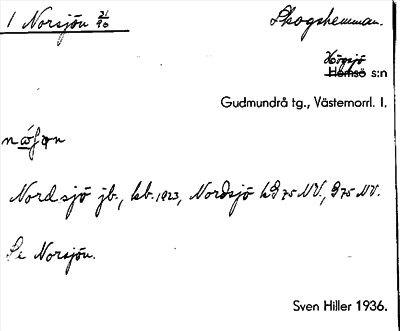 1 Norsjön 21/90 Skogshemman.
Högsjö
Hemsö s:n
Gudmundrå tg., Västernorrl. l.
Nordsjö jb., kb. 1923, Nordsjö hd 75 NV., G 75 NV.
Se Norsjön.
Sven Hiller 1936.